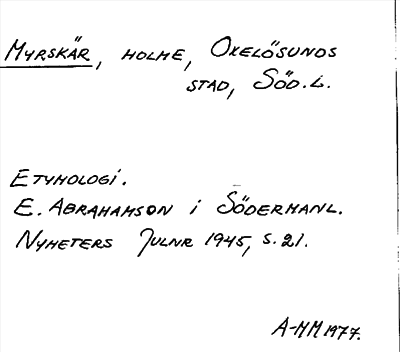 Myrskär, holme, Oxelösunds
stad, Söd.L.
Etymologi.
E. Abrahamson i Södermanl.
Nyheters Julnr 1945, s. 21.
A-MM 1977.